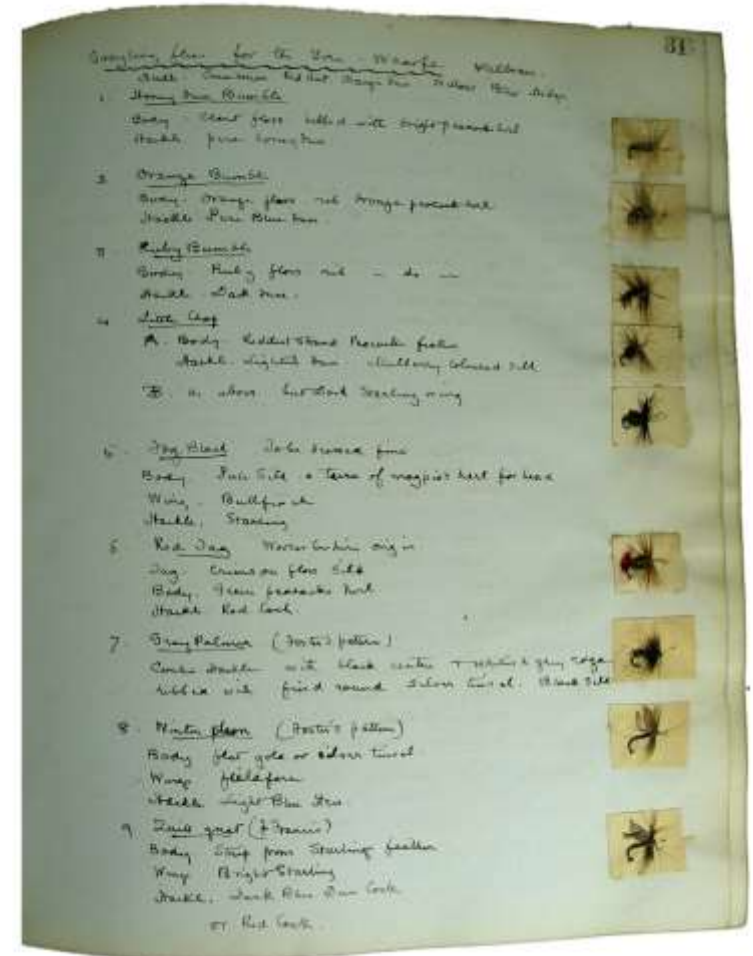 31
Grayling flies for the Ure - Wharfe Walbran.
Dun
1 Honey Dun Bumble
Body floss ribbed with bright peacock herl
Hackle pure honey dun
2 Orange Bumble
Body Orange floss rib bronze peacock herl
Hackle Pure Blue dun.
3 Ruby Bumble
Body Ruby floss rib - do -
Hackle Dark dun.
4 Little Chap
A. Body Reddish Strand Peacock feather
Hackle. Lightish dun Mulberry coloured silk
B. as above but dark Starling wing
5 Fog Black To be dressed fine
Body Silk a turn of magpie's herl for head
Wing. Bullfinch
Hackle. Starling
6 Red Tag Worcestershire origin
Tag. Crimson floss Silk
Body. Green peacocks herl
Hackle Red Cock
7 Gray Palmer (Foster's pattern)
Hackle with black centre + whitish grey edge
ribbed with round silver tinsel. Black Silk
8. (Foster's pattern)
Body flat gold or silver tinsel
Wings fieldfare
Hackle Light Blue dun.
9 Quill gnat (F Francis)
Body Strip from Starling feather
Wing Bright Starling
Hackle. Dark Blue Dun Cock
or Red Cock.